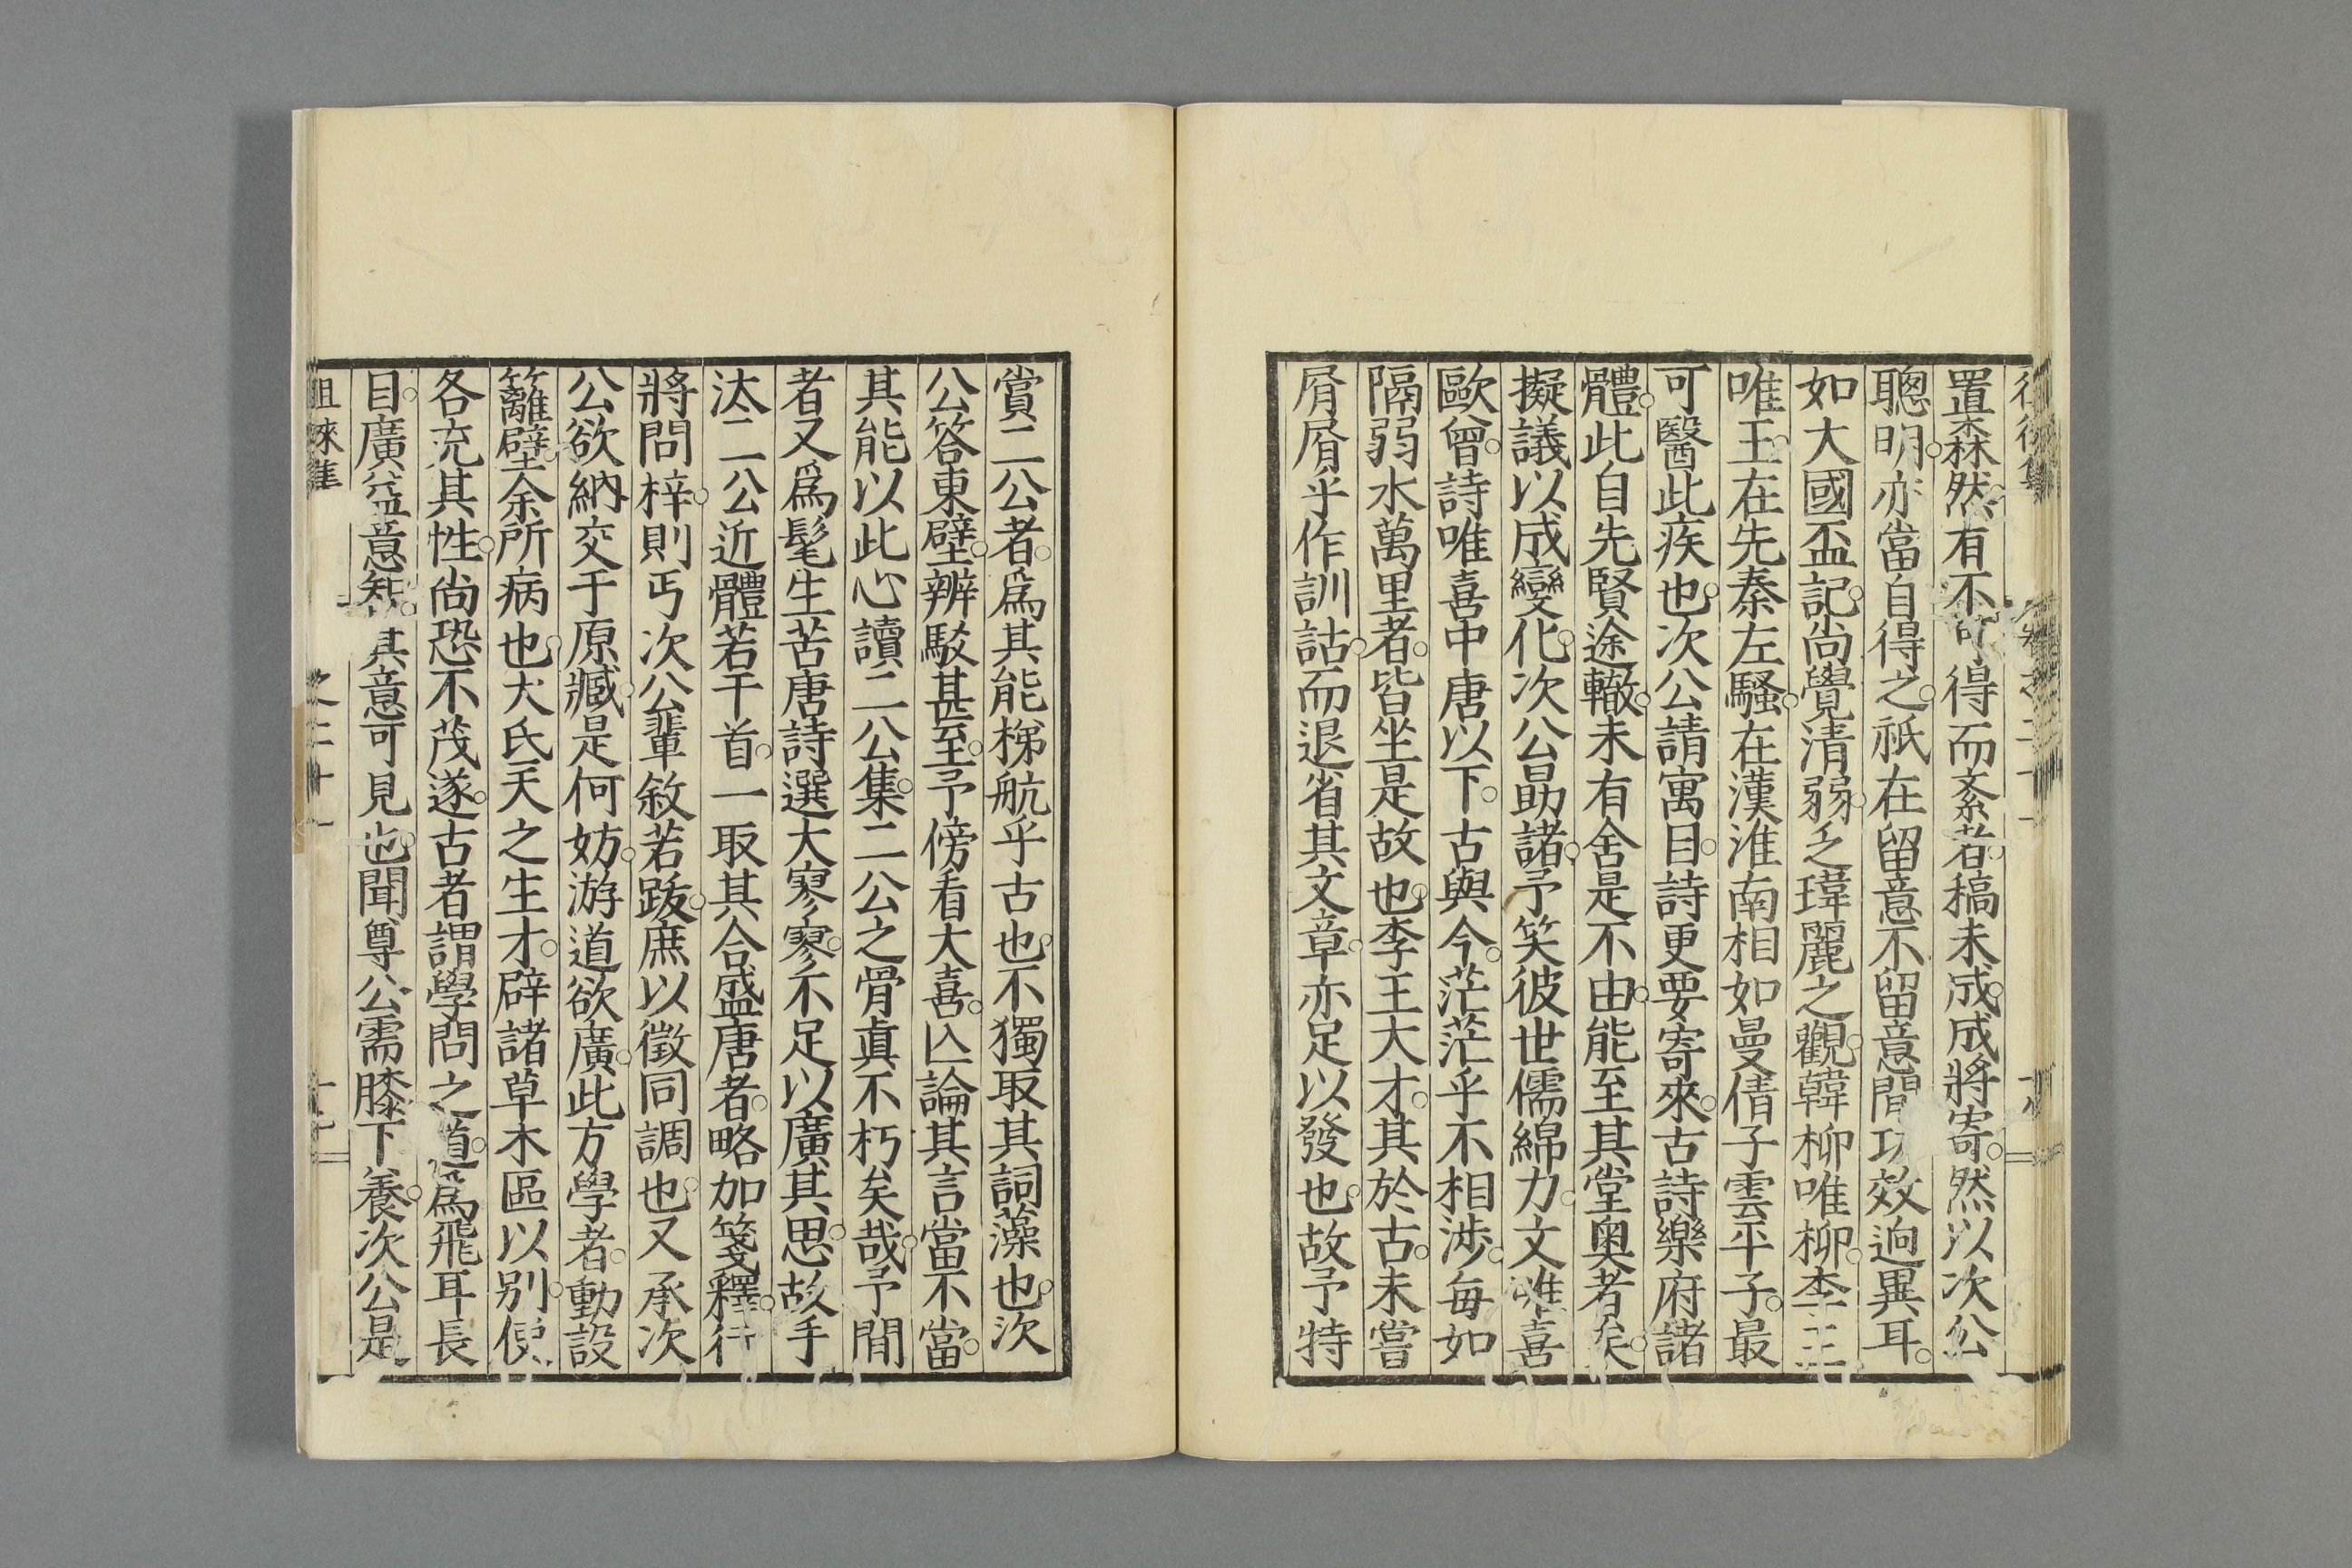 置森然有不可得而紊者稿未成成將寄然以次公
聰明亦當自得之祇在留意不留意間功效逈異耳
如大國盃記尚覺清弱乏瑋麗之觀韓柳唯柳李王
唯王在先秦左騷在漢淮南相如曼倩子雲平子最
可醫此疾也次公請寓目詩更要寄來古詩樂府諸
體此自先賢途轍未有舍是不由能至其堂奧者矣
擬議以成變化次公勗諸予笑彼世儒綿力文唯喜
歐曾詩唯喜中唐以下古與今茫茫乎不相涉每如
隔弱水萬里者皆坐是故也李王大才其於古未嘗
屑屑乎作訓詁而退省其文章亦足以發也故予特
賞二公者爲其能梯航乎古也不獨取其詞藻也次
公答東壁辨駁甚至予傍看大喜亾論其言當不當
其能以此心讀二公集二公之骨眞不朽矣哉予間
者又爲髦生苦唐詩選大寥寥不足以廣其思故手
汰二公近體若干首一取其合盛唐者略加箋釋行
將問梓則丐次公輩敘若跋庶以徵同調也又承次
公欲納交于原臧是何妨游道欲廣此方學者動設
籬壁余所病也大氏天之生才辟諸草木區以別使
各充其性尚恐不茂遂古者謂學問之道爲飛耳長
目廣益意智其意可見也聞尊公需膝下養次公是
徂徠集 之二十一